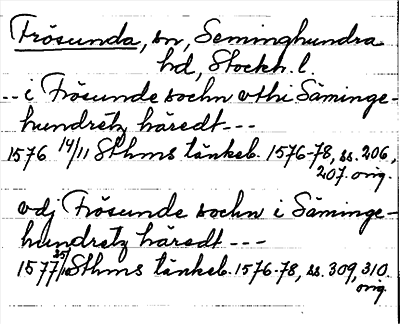 Frösunda, sn, Seminghundra
hd, Stockh. l.
-- i Frösunde sochn vthi Säminge-
hundretz häredt ---
1576 14/11 Sthms tänkeb. 1576-78, ss. 206,
207. orig.
vdj Frösunde sochn i Säminge-
hundretz häredt ---
1577 Sthms tänkeb. 1576-78, ss. 309, 310
orig.